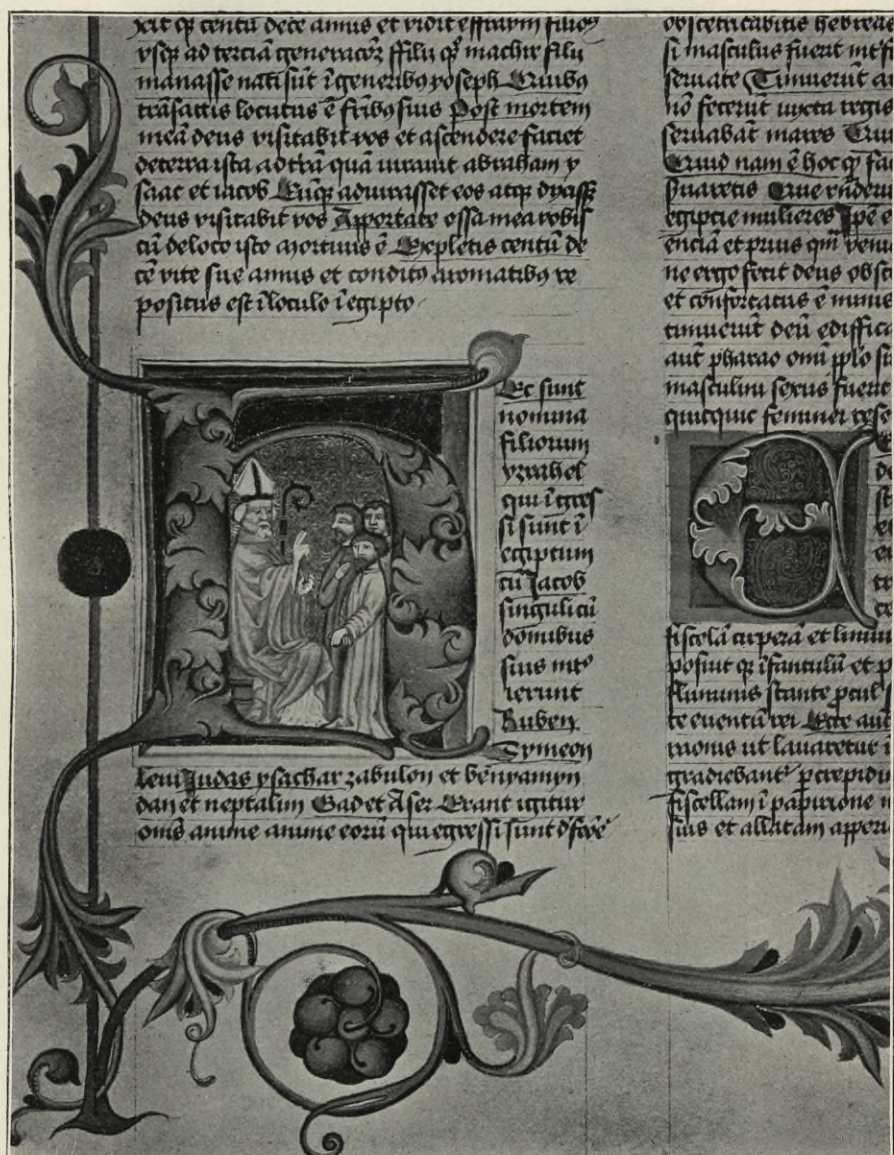 xit qȝ centū dece annis et vidit effraym filios
vsqȝ ad terciā generacōȝ ffilii qȝ machir filii
manasse nati sūt ī generibȝ yoseph Quibȝ
trāsactis locutus ē fribȝ suis Post mortem
meā deus visitabit vos et ascendere faciet
de terra ista ad trā quā iuravit abraham y
saac et iacob Cūqȝ adiurasset eos atqȝ dyxissȝ
deus visitabit vos Apportate ossa mea vobiſ
cū de loco isto mortuus ē Expletis centū de
cē vite sue annis et conditȝ aromatibȝ re
positus est ī loculo ī egipto
Ec sunt
nomina
filiorum
yzrahel
qui ī gres
si sunt ī
egiptum
cū Jacob
singuli cū
domibus
suis int°
ierunt
Ruben
Symeon
leui Judas ysachar zabulon et benyamyn
dan et neptalim Gad et Aser Erant igitur
om̄s anime eorū qui egressi sunt d'
obstetricabitis hebreas
si masculus fuerit
seruate Timuerūt
nō fecerūt iuxta regis
seruabāt mares
Quid nam ē hoc qȝ
Que
egipcie mulieres Ipē ē
enciā et priusqm̄
ne ergo fecit deus
et confortatus ē
timuerūt deū
aūt pharao omī pplo
masculini sexus fuerit
quicquit feminei
E
fiscelā cirpeā et
posuit qȝ īfantulū et
fluminis stante pcul
te euentū rei Ecce aūt
raonis ut lauaretur
gradiebant' p crepidi
fiscellam ī papirione
suis et allatam